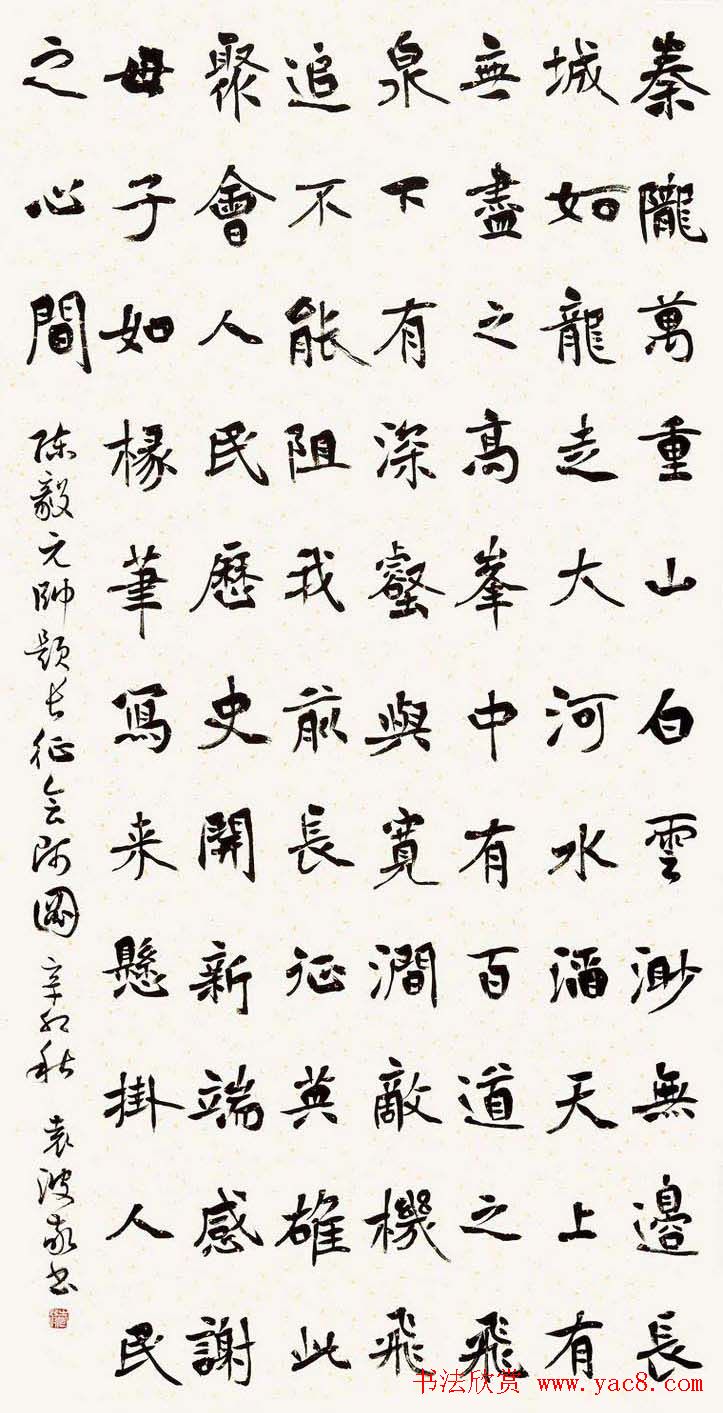 秦隴萬重山白雲渺無邊長
城如龍走大河水湎天上有
無盡之高峯中有百道之飛
泉下有深壑與寬澗敵機飛
追不能阻我前長征英雄此
聚會人民歷史開新端感謝
母子如椽筆寫来懸掛人民
之心間
陳毅元帥題长征会师圖 辛卯秋 袁波敬书
书法欣赏 www.yac8.com